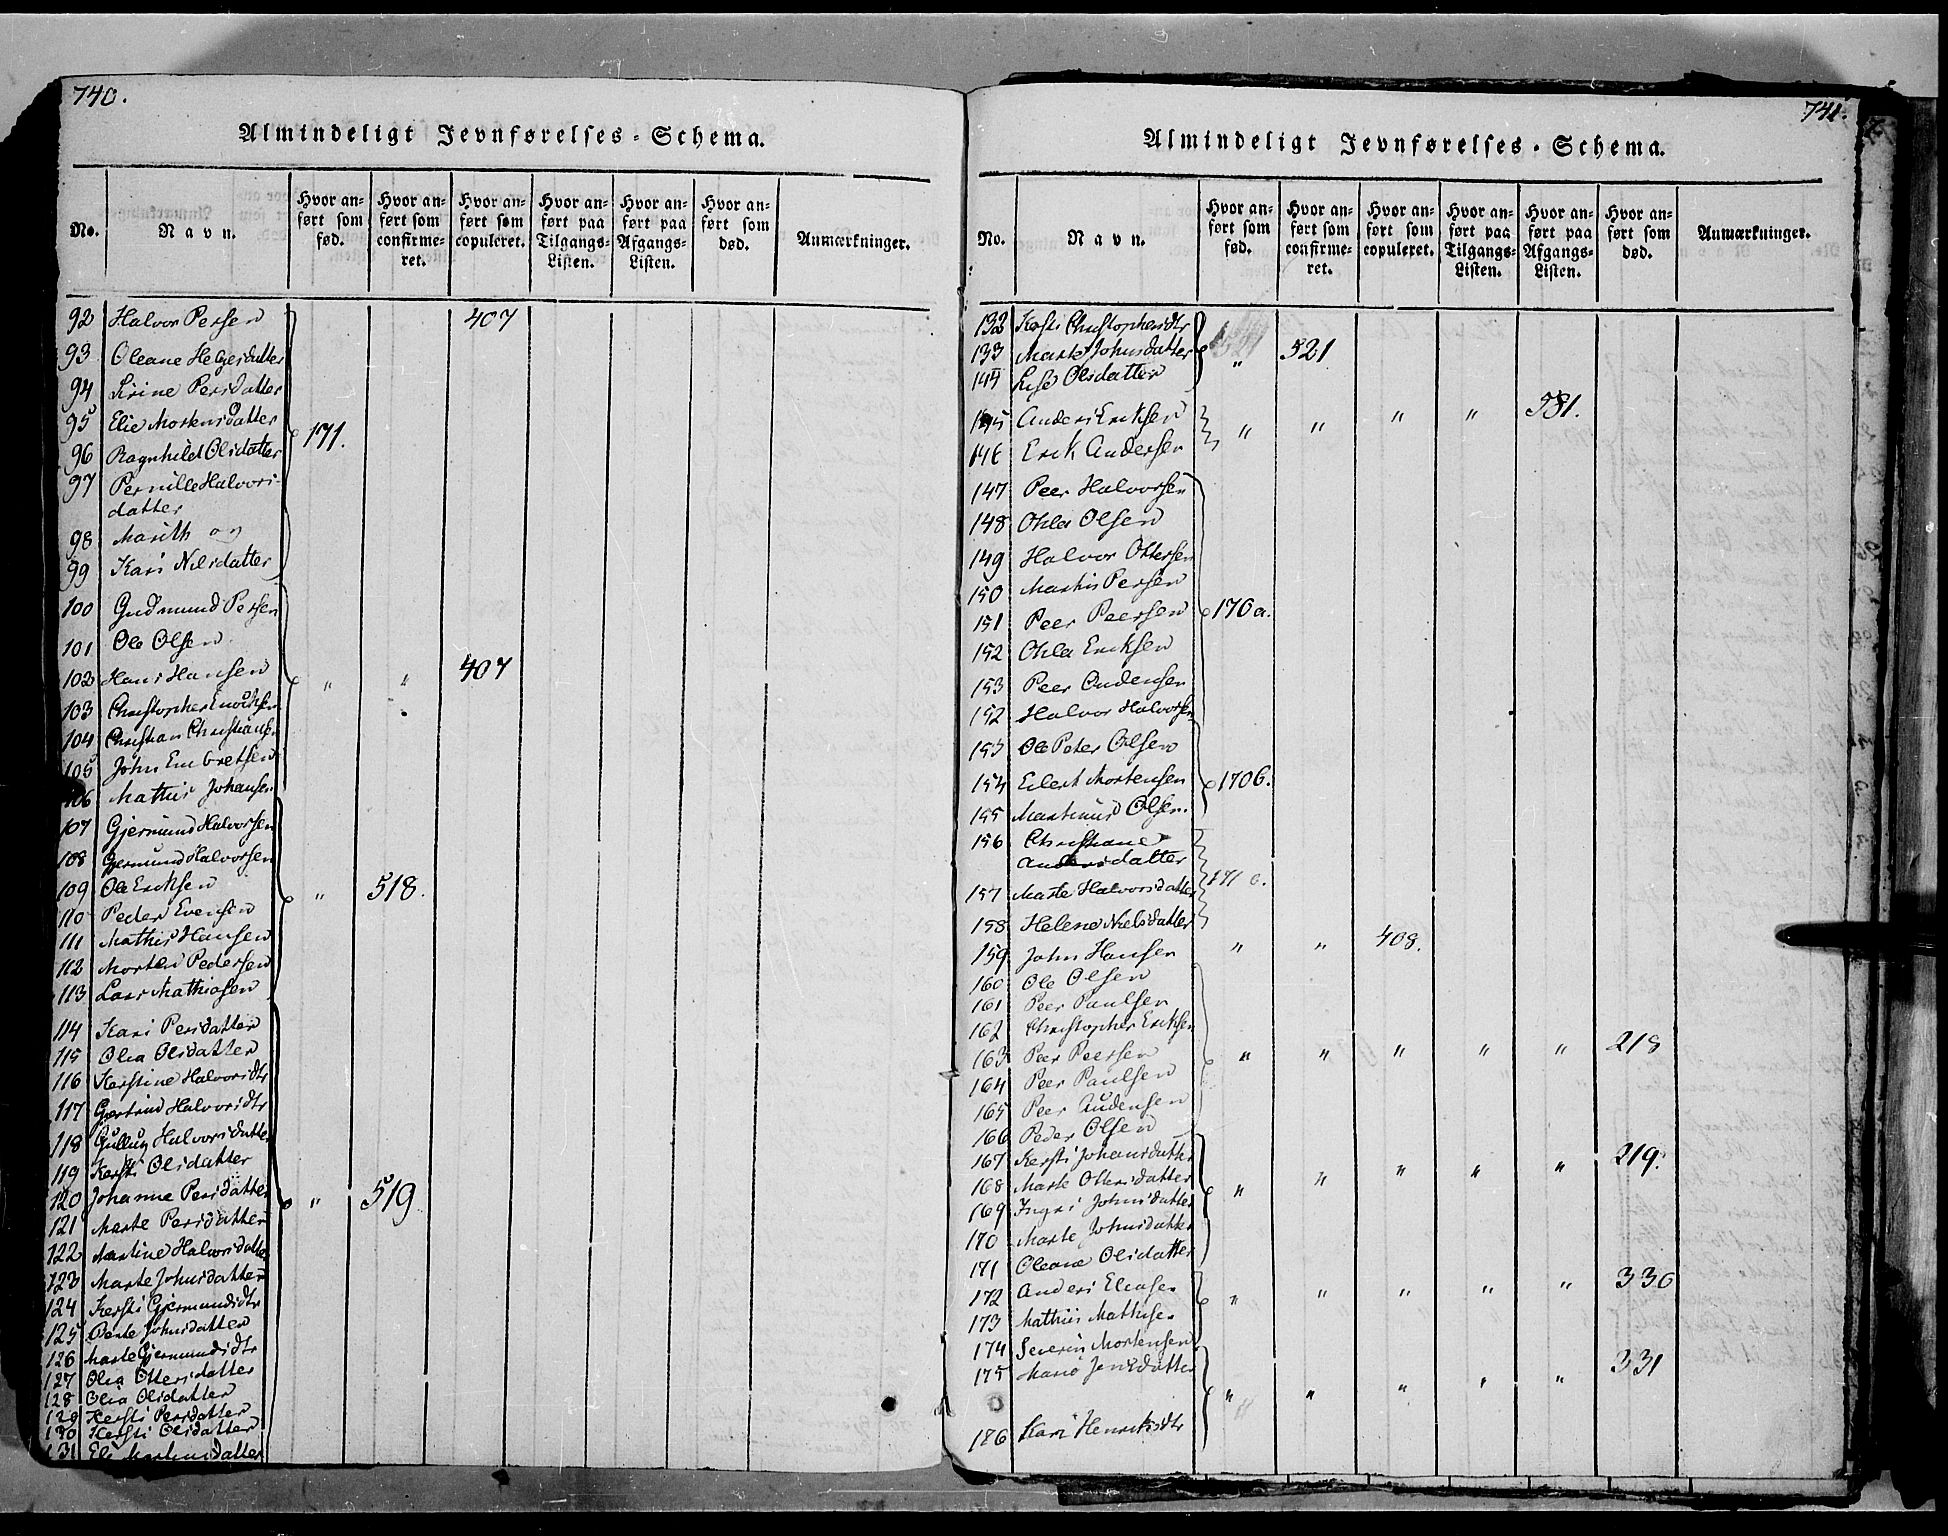 740.
Almindeligt Jevnførelses-Schema.
No.
Navn.
Hvor anført som fød.
Hvor anført som confirmeret.
Hvor anført som copuleret.
Hvor anført paa Tilgangs-Listen.
Hvor anført paa Afgangs-Listen.
Hvor anført som død.
Anmærkninger.
92 Halvor Persen 407
93 Oleane Helgesdatter
94 Sirine Persdatter
95 Elie Mortensdatter 171.
96 Ragnhild Olsdatter
97 Pernille Halvors-
datter
98 Marith og
99 Kari Nilsdatter
100 Gudmund Persen
101 Ole Olsen
102 Hans Hansen " " 407
103 Christopher Enochsen
104 Christian Christiansen
105 John Embretsen
106 Mathis Johansen
107 Gjermund Halvorsen
108 Gjermund Halvorsen
109 Ole Eriksen " 518.
110 Peder Evensen
111 Mathis Hansen
112 Morten Pedersen
113 Lars Mathiasen
114 Kari Persdatter
115 Olia Olsdatter
116 Kerstine Halvorsdtr
117 Gjertrud Halvorsdtr
118 Gullug Halvorsdatter
119 Kersti Olsdatter
120 Johanne Persdatter " 519
121 Marte Persdatter
122 Martine Halvorsdatter
123 Marte Johnsdatter
124 Kersti Gjermundsdtr
125 Berte Johnsdatter
126 Marte Gjermundsdtr
127 Olia Ottersdatter
128 Olia Olsdatter
129 Kersti Persdatter
130 Kersti Olsdatter
131 Eli Mortensdatter
741.
Almindeligt Jevnførelses-Schema.
No.
Navn.
Hvor anført som fød.
Hvor anført som confirmeret.
Hvor anført som copuleret.
Hvor anført paa Tilgangs-Listen.
Hvor anført paa Afgangs-Listen.
Hvor anført som død.
Anmærkninger.
132 Kersti Christophersdtr
133 Marte Johnsdatter " 521
144 Lise Olsdatter
145 Anders Eriksen " " " " 581.
146 Erik Andersen
147 Peer Halvorsen
148 Ohla Olsen
149 Halvor Ottersen
150 Mathis Persen
151 Peer Peersen 170a.
152 Ohla Eriksen
153 Peer Audensen
152 Halvor Halvorsen
153 Ole Peter Olsen
154 Eilert Mortensen 170b.
155 Martinus Olsen.
156 Christiane
Andersdatter
157 Marte Halvorsdatter 171 a.
158 Helene Nielsdatter
159 John Hansen " " 408.
160 Ole Olsen
161 Peer Paulsen
162 Christopher Eriksen
163 Peer Peersen " " " " " 218
164 Peer Paulsen
165 Peer Audensen
166 Peder Olsen
167 Kersti Johansdatter
168 Marte Ottersdatter " " " " " 219.
169 Ingri Johnsdatter
170 Marte Johnsdatter
171 Oleane Olsdatter
172 Anders Eliasen " " " " " 330
173 Mathis Mathisen
174 Severin Mortensen
175 Marie Jensdatter " " " " " 331
186 Kari Henriksdtr